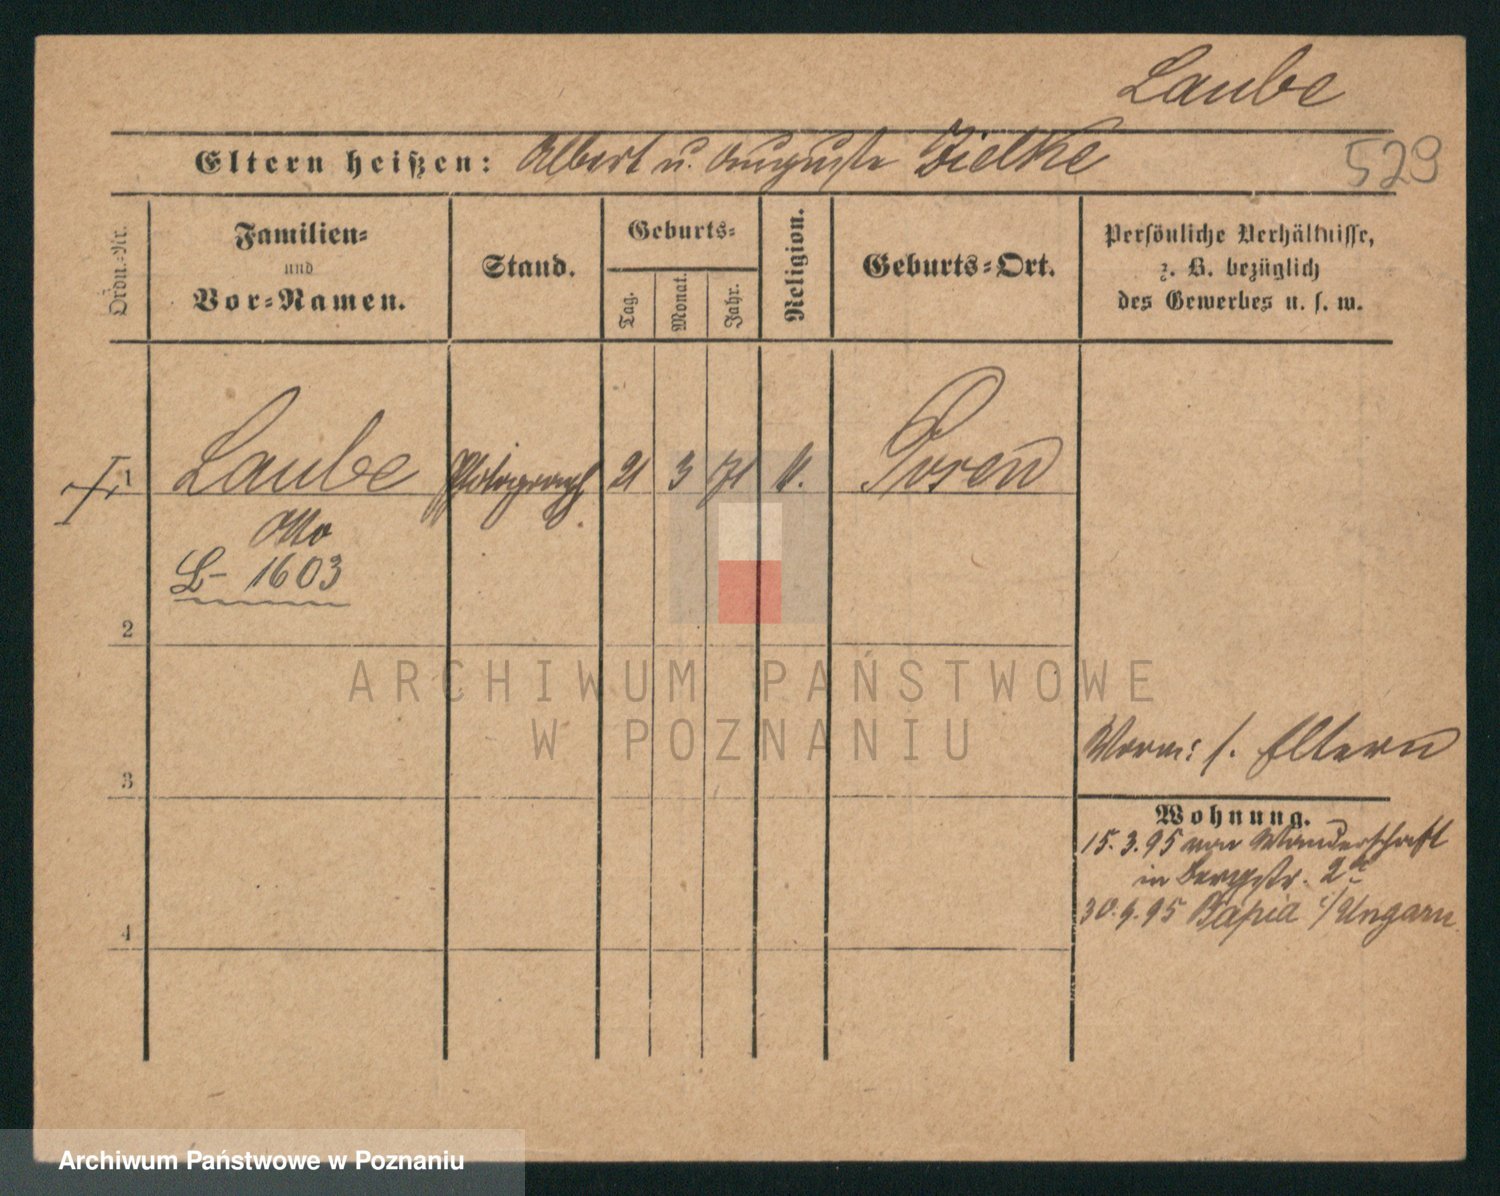 Laube
Eltern heißen: Albert u. Auguste Zielke
529
Ordn.-Nr.
Familien-
und
Vor-Namen.
Stand.
Geburts-
Tag.
Monat.
Jahr.
Religion.
Geburts-Ort.
Persönliche Verhältnisse,
z. B. bezüglich
des Gewerbes u. s. w.
1 Laube Photograph 21 3 71 Posen
Otto
L- 1603
2
ARCHIWUM PAŃSTWOWE
W POZNANIU
s. Eltern
3
Wohnung.
15.3.95 von Wanderschaft
in Bergstr.
30.9.95 Ungarn
4
Archiwum Państwowe w Poznaniu